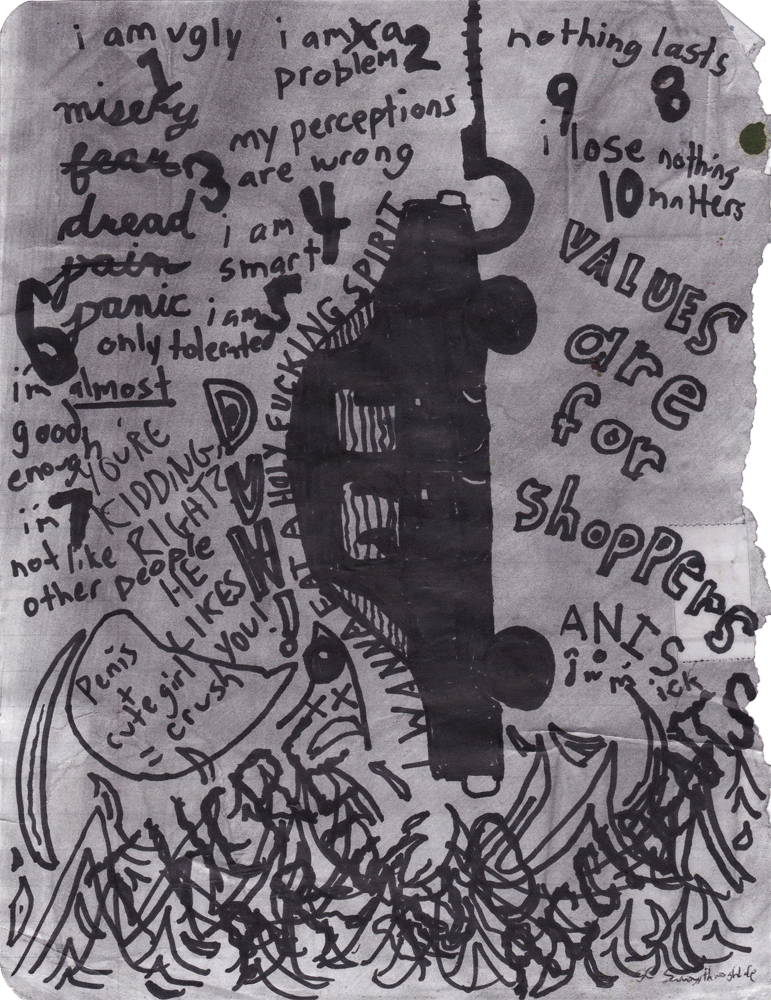 i am ugly
1
i am a
problem 2
nothing lasts
9 8
misery
fear
my perceptions
are wrong
3
i lose nothing
10 matters
dread
i am 4
smart
pain
6 panic
i am 5
only tolerated
i'm almost
good
enough
i'm 7
not like
other people
YOU'RE
KIDDING,
RIGHT?
HE
LIKES
YOU!
DUH!
I WANNA EAT A HOLY FUCKING SPIRIT
VALUES
are
for
shoppers
Penis
+
cute girl
= crush
XX